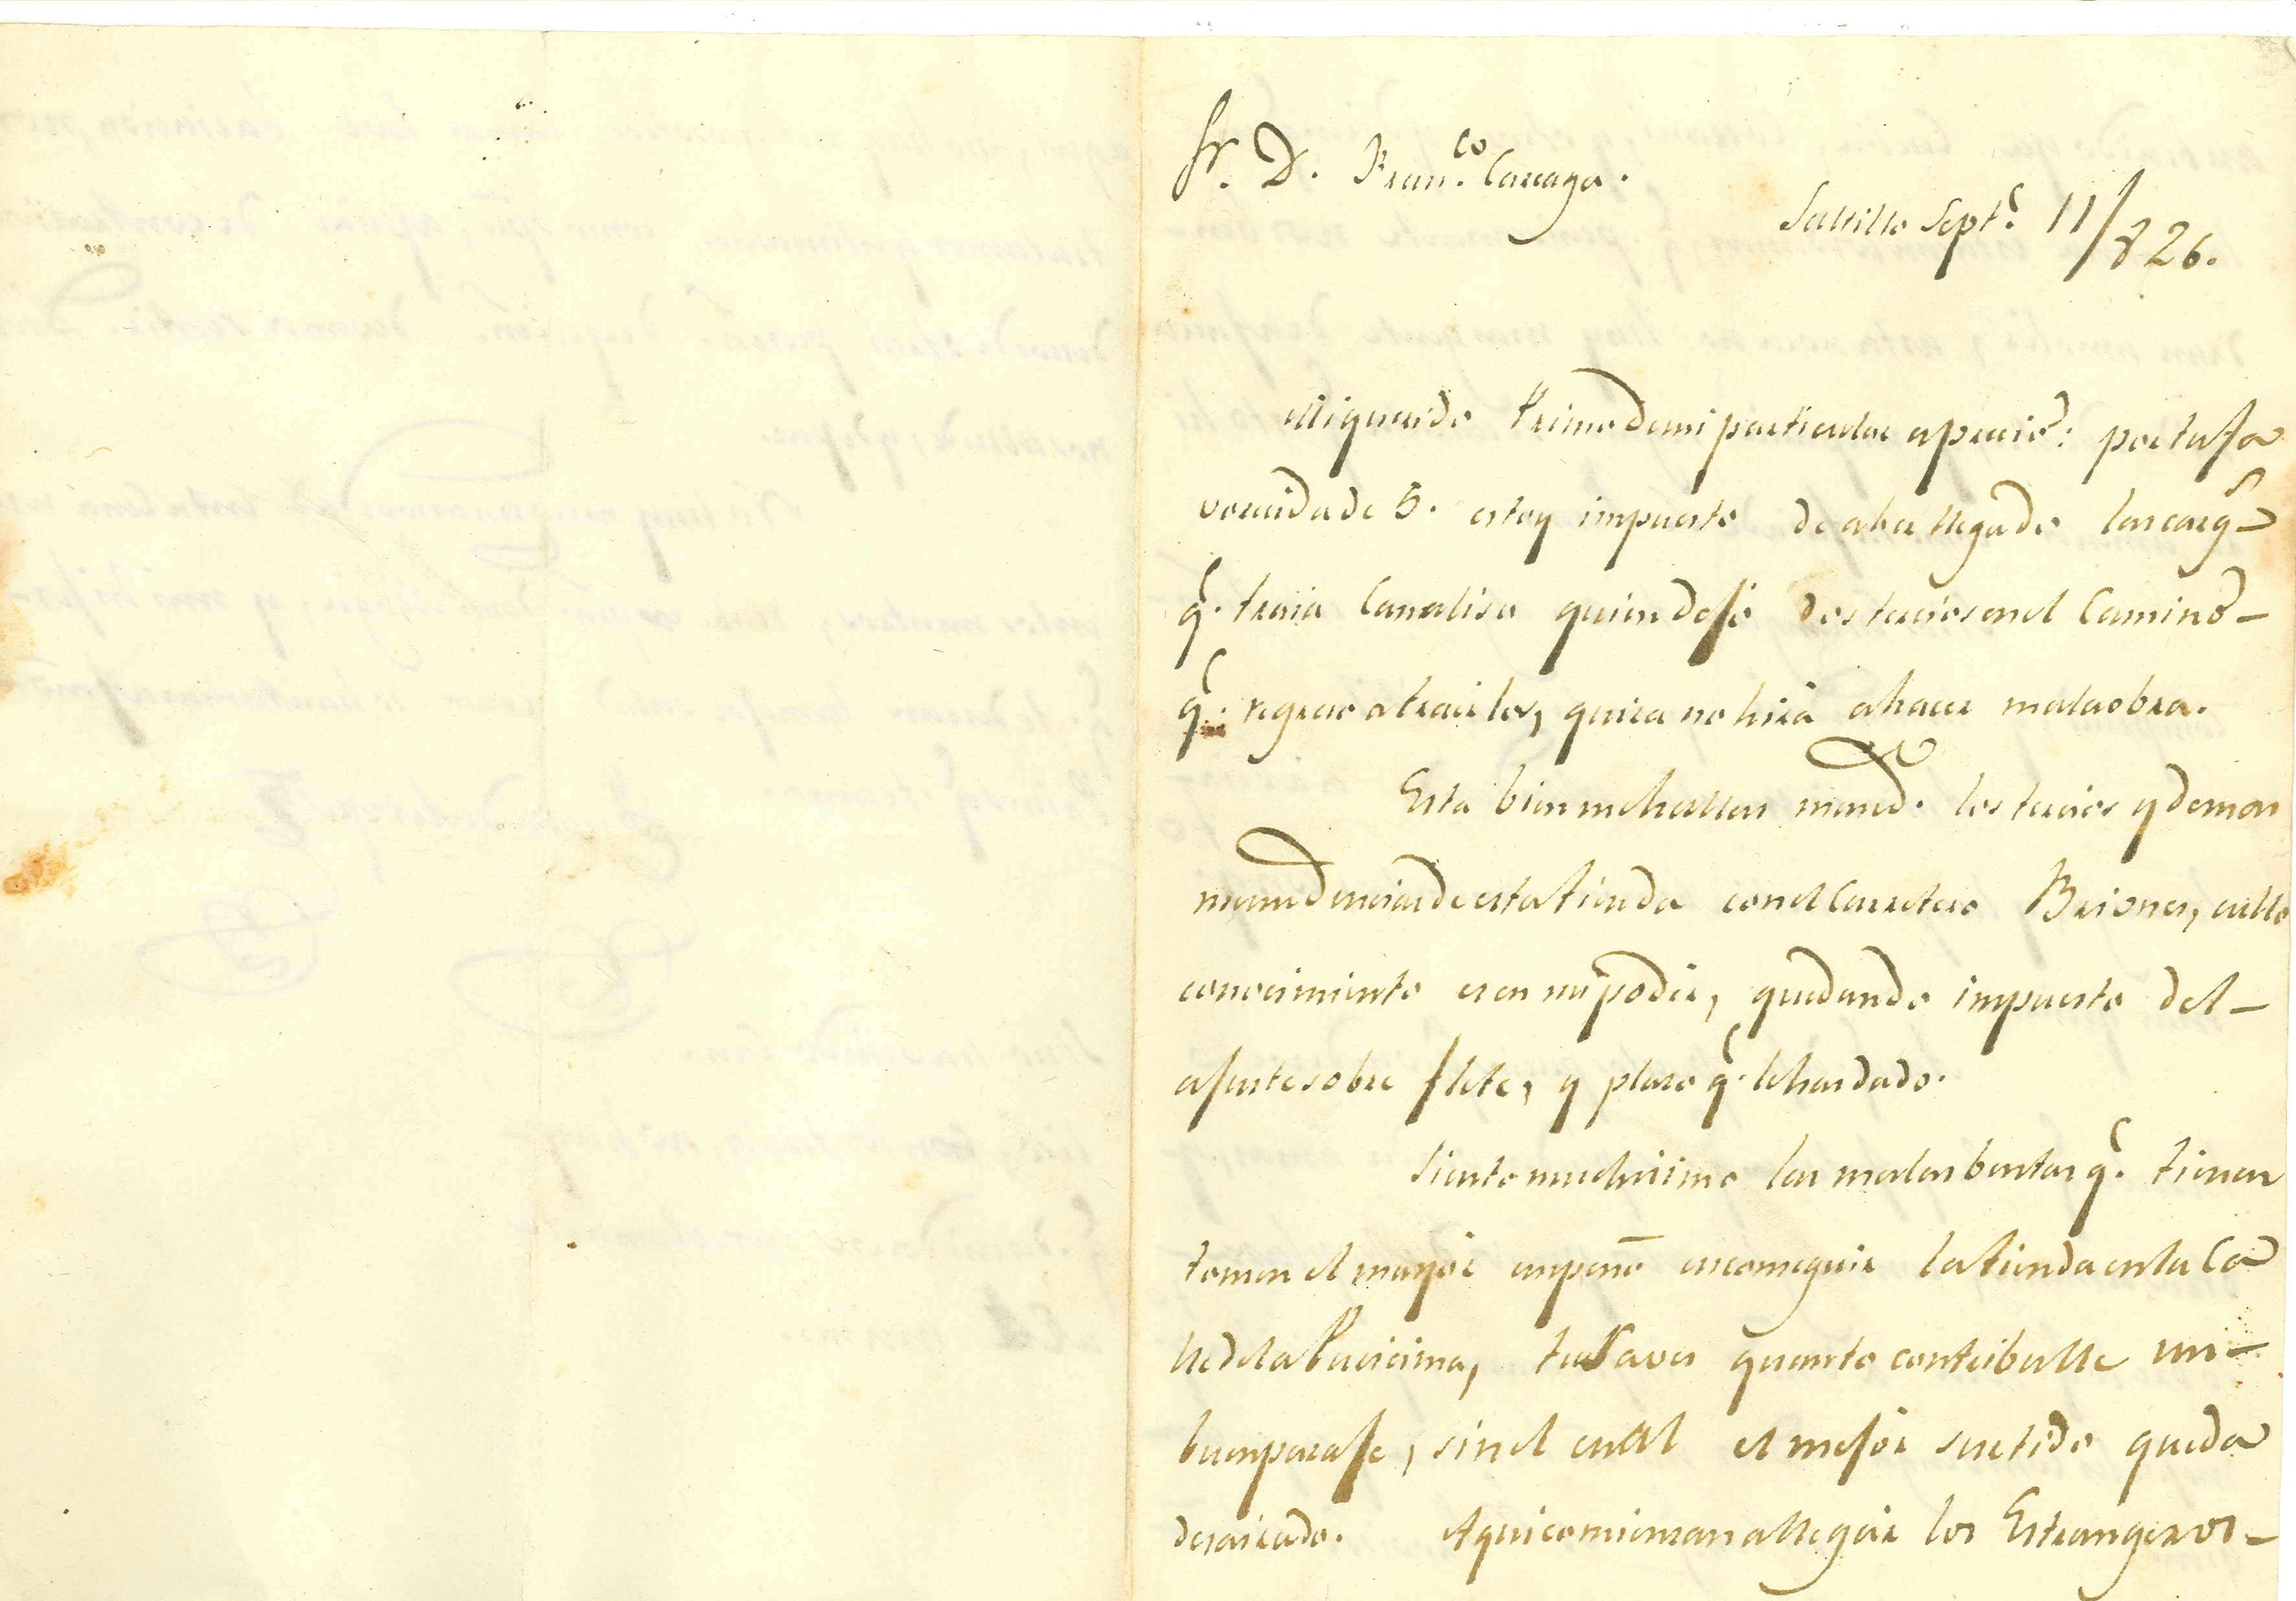 Sr. D. Fran.co Carcaga.
Saltillo Sept.e 11/826.
Mi querido Primo de mi particular aprecio: por tu fa
vorecida de 5. estoy impuesto de aber llegado las carg.s
q.e traia Canaliso quien dejó dos tercios en el Camino
q.e regreso a traerlos, quiza no hirá a hacer mala obra.
Está bien me hallas mand.o los tercios y demas
mendencias de esta tienda con el Carretero Briones, cullo
conocimiento es en mi poder, quedando impuesto del
ajuste sobre flete, y plaso q.e le has dado.
Siento muchisimo las malas bentas q.e tienes
tomen el mayor empeño en conseguir la tienda en la Ca
lle de la Purisima, tu saves quanto contribulle un
buen paraje, sin el cual el mejor surtido queda
desairado. Aqui comiensan a llegar los Estrangeros